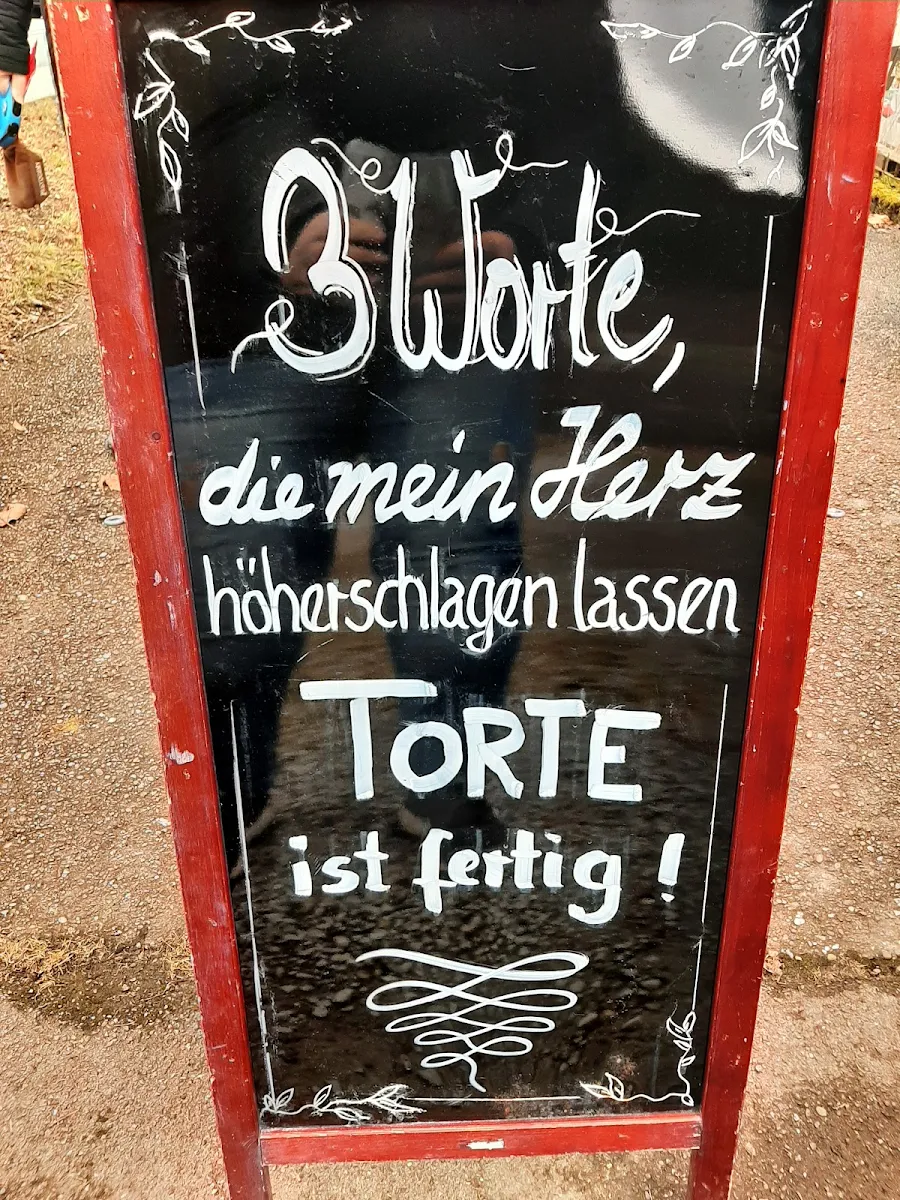 3 Worte,
die mein Herz
höherschlagen lassen
TORTE
ist fertig!